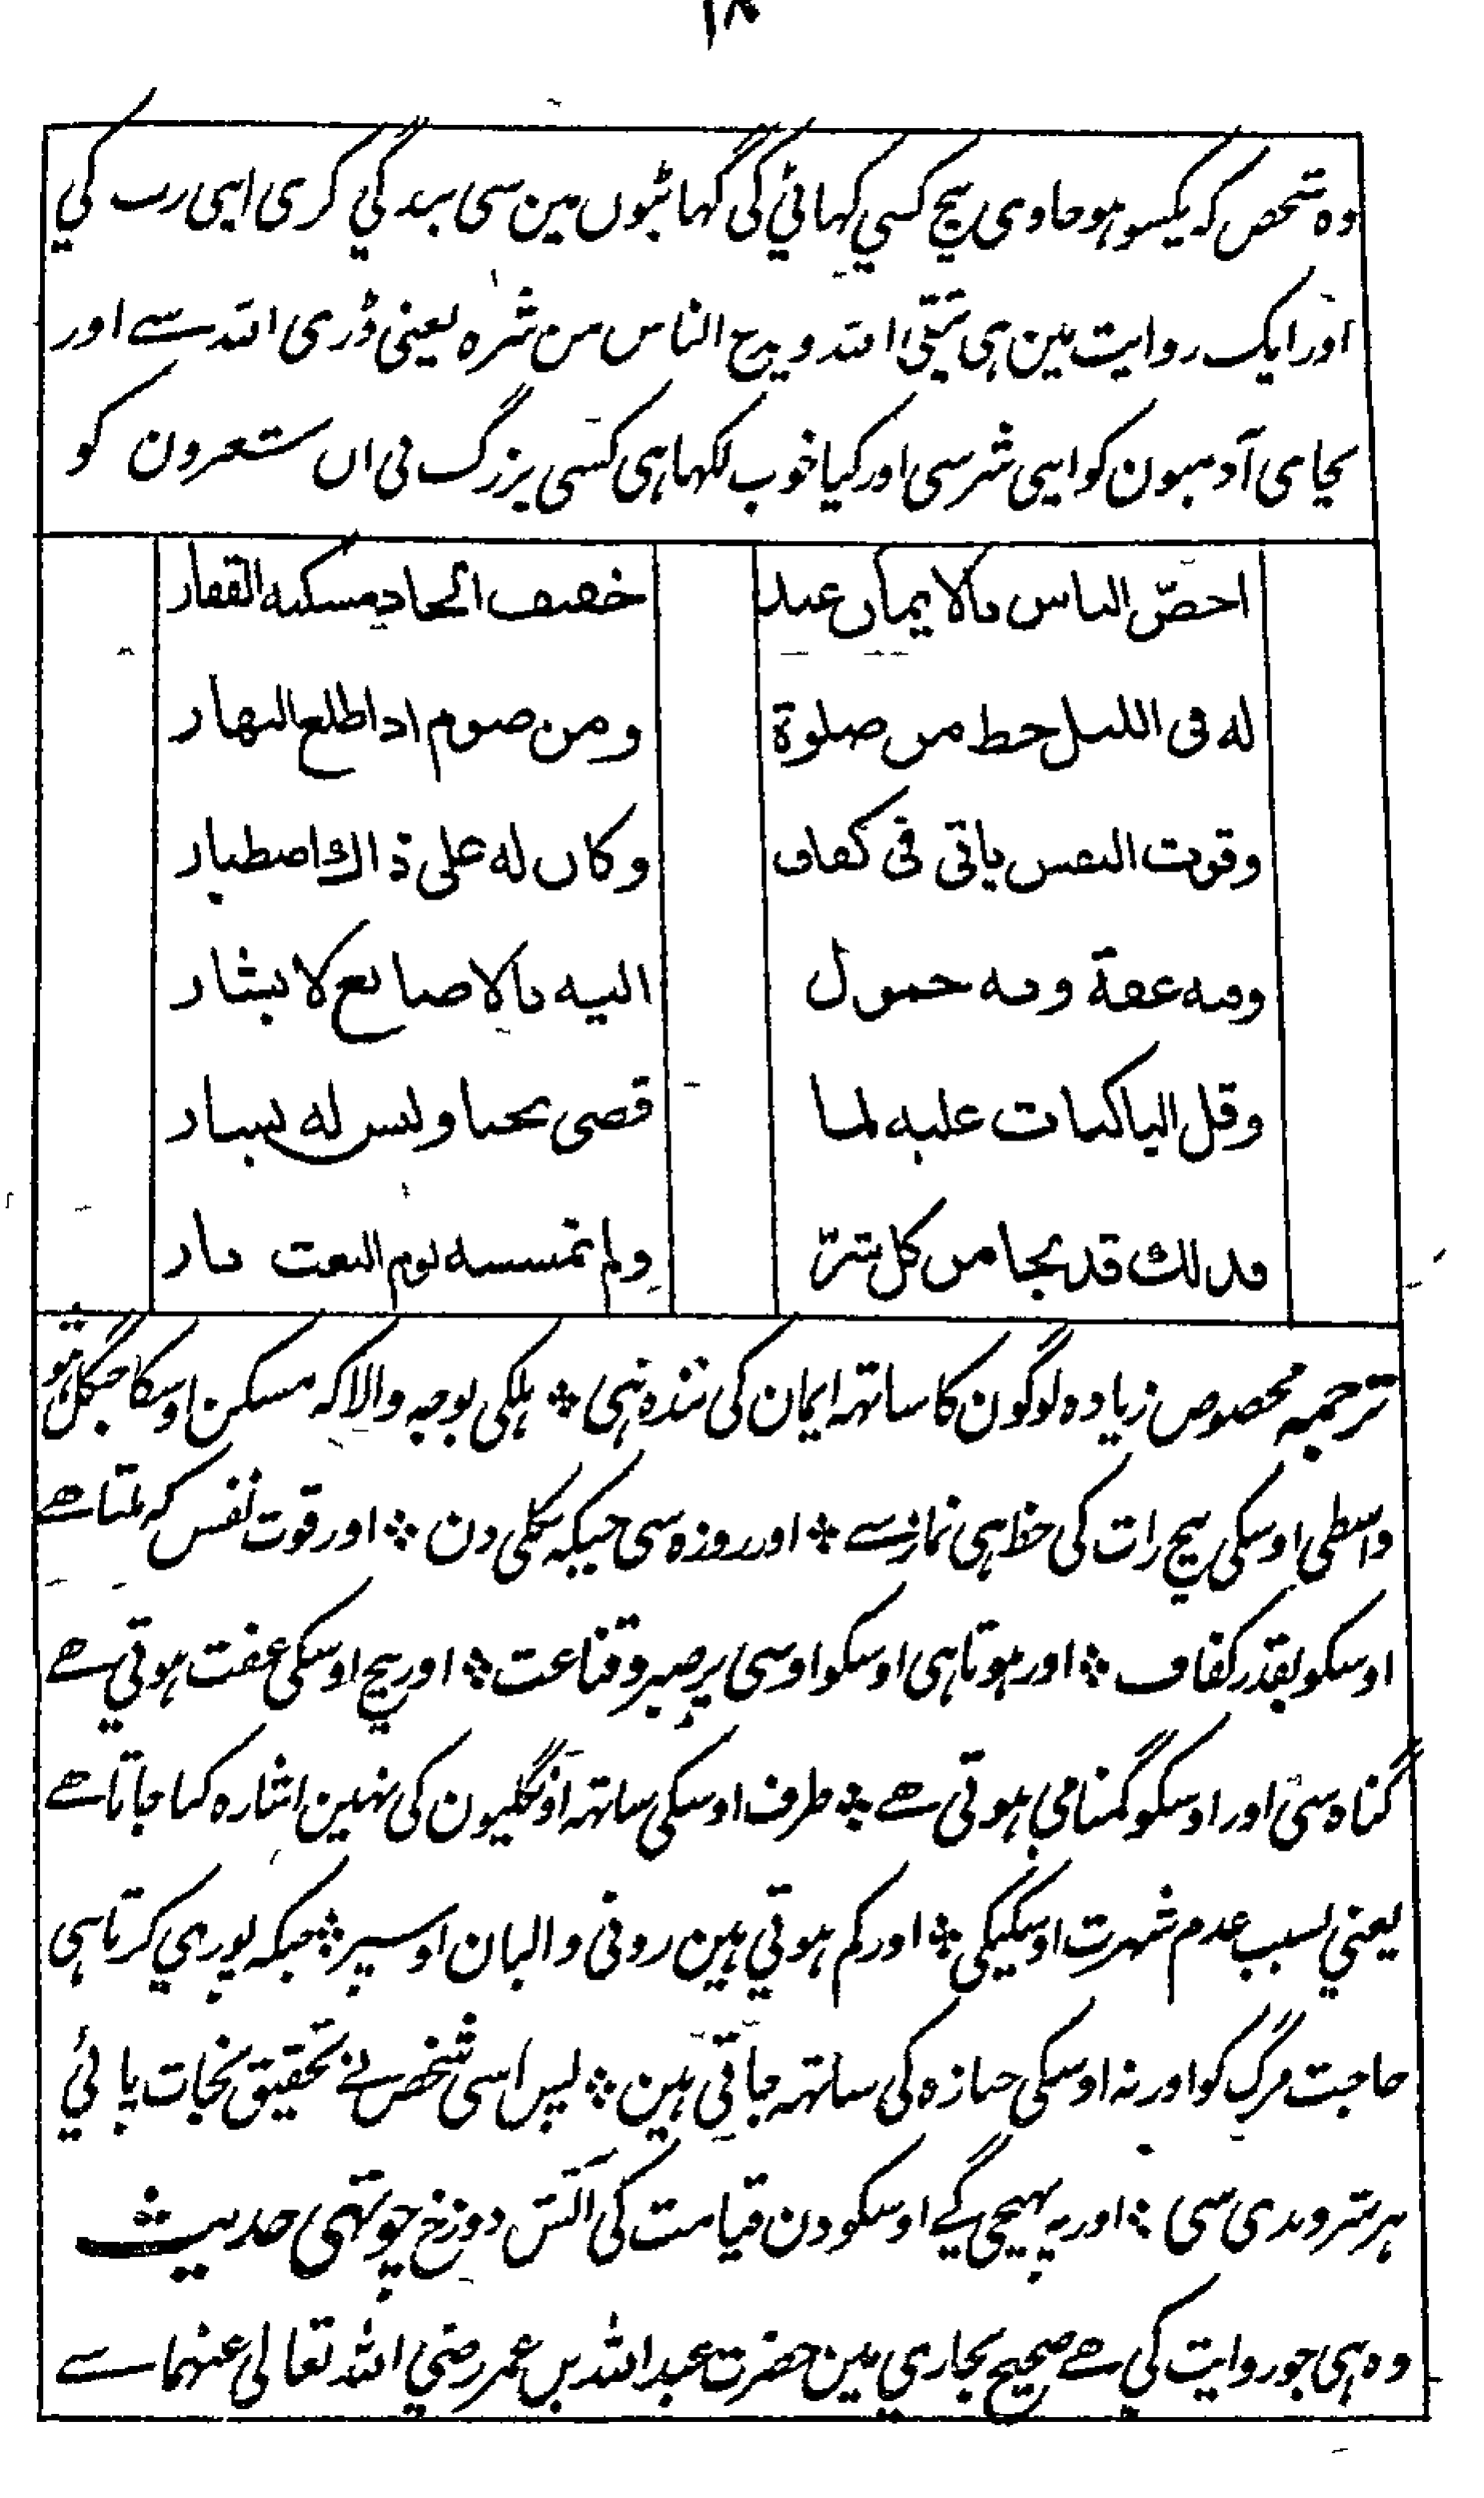 ۱۸
وہ شخص کہ یکسو ہو جاوی بیچ کسی کہاٹی کی گہاٹیوں مین سی بندگی کری اپنی رب کی
اور ایک روایت مین ہی یتقی اللہ ویدع الناس من شرہ یعنی ڈری اللہ سے اور
بچاوی آدمیون کو اپنی شر سی اور کیا خوب لکہا ہی کسی بزرگ نی ان شعرون کو
اخصّ الناس بالایمان عبد خفیف الحاذ مسکنه القفار
له فی اللیل حظ من صلوة ومن صوم اذا طلع النهار
وقوت النفس یاتی فی کفاف وکان له علی ذالك اصطبار
وفیه عفة وفیه خمول الیه بالاصابع لا یشار
وقل الباکیات علیه لما قضی نحبا ولیس له یسار
فذلك قد نجا من کل شرّ ولم تمسسه یوم البعث نار
ترجمہ مخصوص زیادہ لوگون کا ساتہہ ایمان کی بندہ ہی ؞ ہلکی بوجہ والا کہ مسکن اوسکا جنگل ہو
واسطی اوسکی بیچ رات کی حظ ہی نماز سے ؞ اور روزہ سی جبکہ نکلی دن ؞ اور قوت نفس کہ ملتا ہے
اوسکو بقدر کفاف ؞ اور ہوتا ہی اوسکو اوسی پر صبر و قناعت ؞ اور بیچ اوسکی عفت ہوتی ہے
گناہ سی اور اوسکو گمنامی ہوتی ہے ؞ طرف اوسکی ساتہہ اونگلیون کی نہین اشارہ کیا جاتا ہے
یعنی بسبب عدم شہرت اوسکیکی ؞ اور کم ہوتی ہین رونی والیان اوسپر ؞ جبکہ پوری کرتا ہی
حاجت مرگ کو اور نہ اوسکی جنازہ کی ساتہہ جاتی ہین ؞ پس اسی شخص نے تحقیق نجات پائی
ہر شر و بدی سی ؞ اور نہ پہنچی گے اوسکو دن قیامت کی آتش دوزخ چوتہی حدیث
وہ ہی جو روایت کی ہے صحیح بخاری مین حضرت عبداللہ بن عمر رضی اللہ تعالی عنہما سے